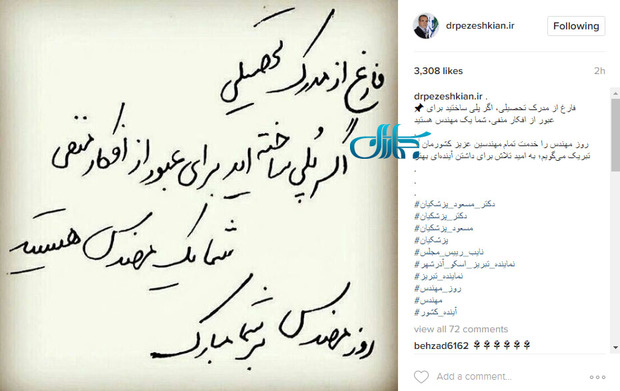 فارغ از مدرک تحصیلی
اگر پُلی ساخته اید برای عبور از افکار منفی
شما یک مهندس هستید
روز مهندس بر شما مبارک
جماران
drpezeshkian.ir
Following
3,308 likes
2h
drpezeshkian.ir .
📌 فارغ از مدرک تحصیلی، اگر پلی ساختید برای
عبور از افکار منفی، شما یک مهندس هستید
روز مهندس را خدمت تمام مهندسین عزیز کشورمان
تبریک می‌گویم، به امید تلاش برای داشتن آینده‌ای بهتر
.
.
.
#دکتر_مسعود_پزشکیان
#دکتر_پزشکیان
#مسعود_پزشکیان
#پزشکیان
#نایب_رییس_مجلس
#نماینده_تبریز_اسکو_آذرشهر
#نماینده_تبریز
#روز_مهندس
#مهندس
#آینده_کشور
view all 72 comments
behzad6162 ⚘⚘⚘⚘⚘⚘
Add a comment...